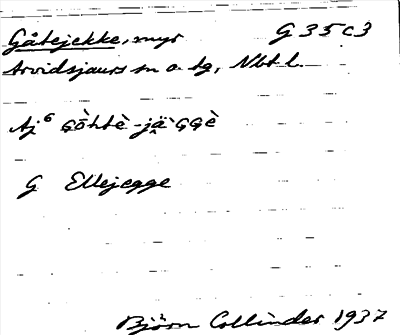 Gåtejekke, myr G 35 c 3
Arvidsjaurs sn o. tg, Nbt l.
Aj⁶ GÒ̄htè-jä̀GGè
G Ellejegge
Björn Collinder 1937